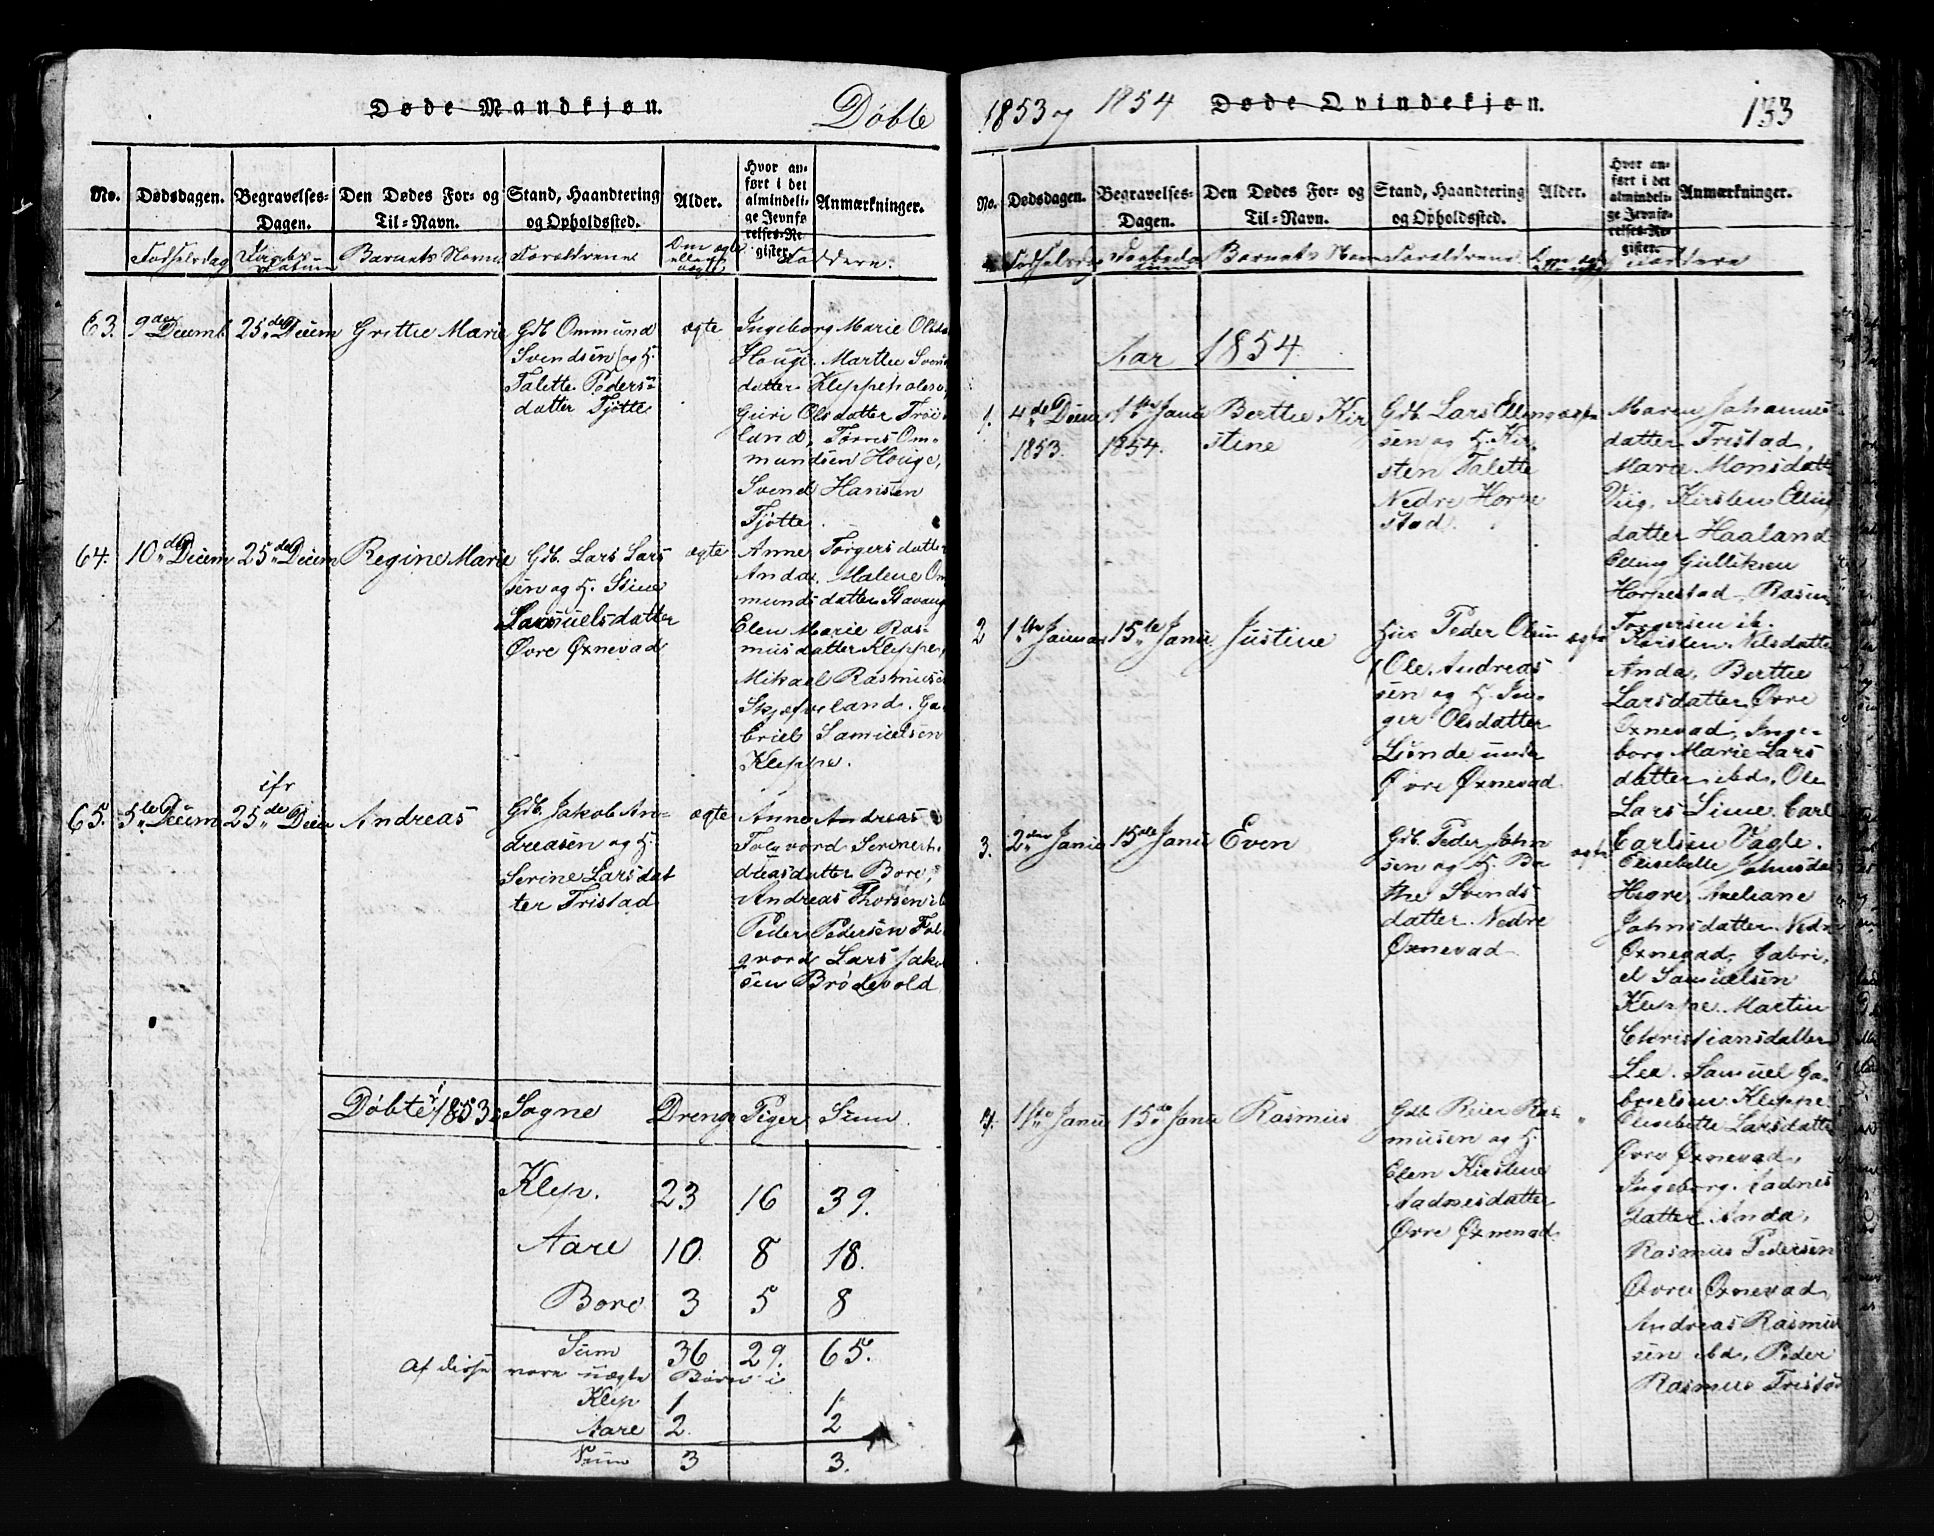 Døde Mandkjøn.
Døbte
No.
Dødsdagen.
Begravelses-
Dagen.
Den Dødes For- og
Til-Navn.
Stand, Haandtering
og Opholdssted.
Alder.
Hvor an-
ført i det
almindeli-
ge Jevnfø
relses-Re
gister.
Anmærkninger.
Fødselsdag
Barnets Navn
Forældrene
Om ægte
eller
Faddere.
63.
9de Decemb
25de Decem
Grethe Marie
Gdb. Ommund
Svendsen og H.
Talette Peders-
datter Tjøtte
ægte
Ingeborg Marie Olsd
Houge, Marthe Svens
datter Kleppeholen,
Guri Olsdatter Frøi
land, Tørres Om-
mundsen Houge,
Svend Hansen
Tjøtte.
64.
10de Decem
25de Decem
Regine Marie
Gdb. Lars Lars
sen og H. Stine
Samuelsdatter
Øvre Øxnevad
ægte
Anne Torgersdatter
Anda, Malene Om
mundsdatter Stavang
Elen Marie Ras-
musdatter Kleppe,
Mikael Rasmusse
Skjæfveland. Ga-
briel Samuelsen
Kleppe.
65.
5te Decem
25de Decem
Andreas
Gdb. Jakob An-
dreasen og H.
Serine Larsdat
ter Tristad
ægte
Anne Andreas
Folgvord Serine
dreasdatter Bore,
Andreas Thorsen ib
Peder Pedersen Fol
gvord Lars Jakob
sen Brødevold
Døbte i 1853
Sogne
Drenge
Piger
Sum
Klep.
23
16
39.
Aare
10.
8
18.
Bore
3
5
8
Sum
36
29.
65.
Af disse vare uægte Børn i
Klep
1
1
Aare
2.
2
Sum
3
3.
1853 og 1854
Døde Qvindekjøn.
133
No.
Dødsdagen.
Begravelses-
Dagen.
Den Dødes For- og
Til-Navn.
Stand, Haandtering
og Opholdssted.
Alder.
Hvor an-
ført i det
almindeli-
ge Jevnfø-
relses-Re-
gister.
Anmærkninger.
Fødselsdag
Barnets Navn
Forældrene
Faddere
Aar 1854.
1.
4de Decem
1853.
1ste Janu
1854.
Berthe Kir
stine
Gdb. Lars Ellens
sen og H. Kir
sten Talette
Nedre Horpe
stad.
ægte
Maren Johannes
datter Tristad,
Marie Monsdatt
Viig, Kirsten Elling
datter Haaland
Elling Gulliksen
Horpestad, Rasmus
Torgersen ib.
2
1ste Januar
15te Janu
Justine
Peder Olsen
(Ole Andreas
sen og H. In-
ger Olsdatter
Lunde under
Øvre Øxnevad
ægte
Kirsten Nilsdatter
Anda, Berthe
Larsdatter Øvre
Oxnevad, Inge-
borg Marie Lars
datter ibd, Ole
Lars Lime. Carl
Carlsen Vagle.
3.
2den Janu
15de Janu
Even
Gdb. Peder John
sen og H. Ba
the Svends
datter Nedre
Øxnevad
ægte
Elisebette Johnsdat
Hegre, Axeliane
Johnsdatter Nedre
Oxnevad, Gabri-
el Samuelsen
Kleppe. Martin
Christiansdatter
Lea. Samuel Ga-
brielsen Kleppe
4.
1ste Janu
15de Janu
Rasmus
Gdb. Reier Ras-
musen og H.
Elen Kirstine
Aadnesdatter
Øvre Øxnevad
"
Elisebette Larsdatte
Øvre Øxnevad,
Ingeborg Aadnes
datter Anda,
Rasmus Pedersen
Øvre Oxnevad
Andreas Rasmus
sen ibd, Peder
Rasmus Tristad